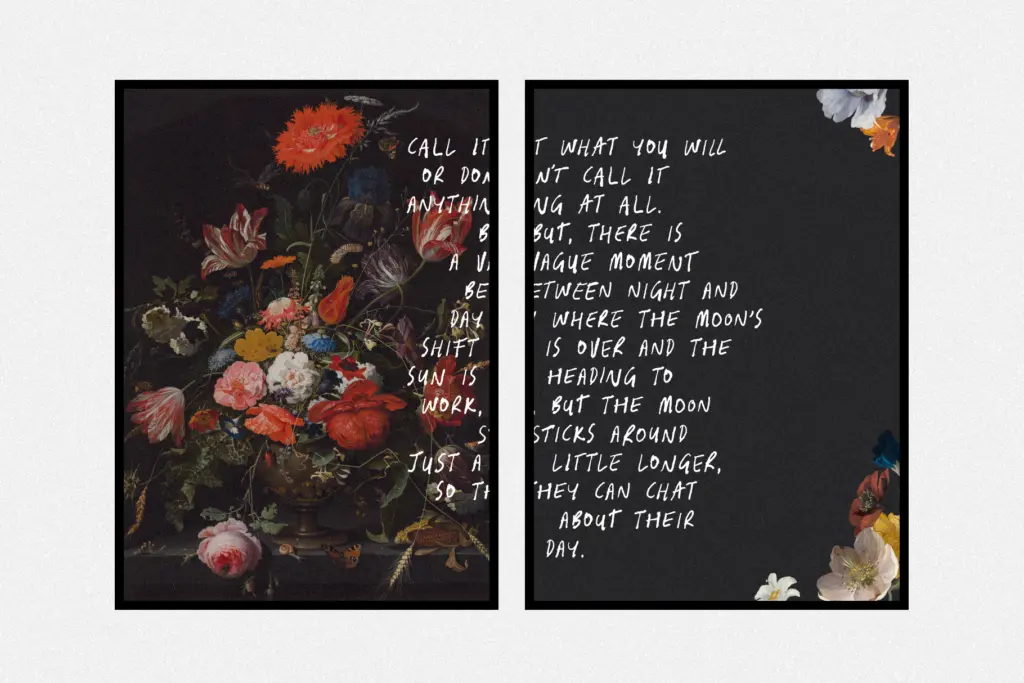 CALL IT WHAT YOU WILL
OR DON'T CALL IT
ANYTHING AT ALL.
BUT, THERE IS
A VAGUE MOMENT
BETWEEN NIGHT AND
DAY WHERE THE MOON'S
SHIFT IS OVER AND THE
SUN IS HEADING TO
WORK, BUT THE MOON
STICKS AROUND
JUST A LITTLE LONGER,
SO THEY CAN CHAT
ABOUT THEIR
DAY.